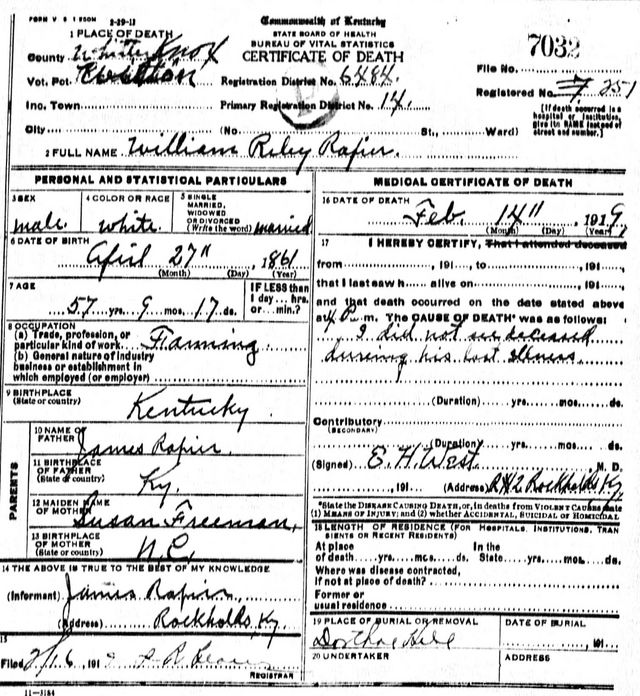 FORM V S 1 250M 2-29-11
Commonwealth of Kentucky
STATE BOARD OF HEALTH
BUREAU OF VITAL STATISTICS
CERTIFICATE OF DEATH
7032
File No.
Registered No. 7 251
[If death occurred in a hospital or institution, give its NAME instead of street and number.]
1 PLACE OF DEATH
County Whitley Knox
Vot. Pct.
Registration District No. 6484
Inc. Town
Primary Registration District No. 14
City (No St., Ward)
2 FULL NAME William Riley Rapier
PERSONAL AND STATISTICAL PARTICULARS
3 SEX male
4 COLOR OR RACE white
5 SINGLE MARRIED, WIDOWED OR DIVORCED (Write the word) married
6 DATE OF BIRTH
April 27" 1861
(Month) (Day) (Year)
7 AGE
57 yrs. 9 mos. 17 ds.
IF LESS than 1 day... hrs. or... min.?
8 OCCUPATION
(a) Trade, profession, or particular kind of work Farming
(b) General nature of industry business or establishment in which employed (or employer)
9 BIRTHPLACE
(State or country) Kentucky
PARENTS
10 NAME OF FATHER James Rapier
11 BIRTHPLACE OF FATHER
(State or country) Ky.
12 MAIDEN NAME OF MOTHER Susan Freeman,
13 BIRTHPLACE OF MOTHER
(State or country) N.C.
14 THE ABOVE IS TRUE TO THE BEST OF MY KNOWLEDGE
(Informant) James Rapier
(Address) Rockholds, Ky.
15
Filed 2/16 191
REGISTRAR
11-3184
MEDICAL CERTIFICATE OF DEATH
16 DATE OF DEATH
Feb 14" 1919
(Month) (Day) (Year)
17 I HEREBY CERTIFY, That I attended deceased
from , 191 , to , 191 ,
that I last saw h alive on , 191 ,
and that death occurred on the date stated above
at 4 P. m. The CAUSE OF DEATH* was as follows:
I did not see deceased
during his last illness
(Duration) yrs. mos. ds.
Contributory
(SECONDARY)
(Duration) yrs. mos. ds.
(Signed) E. H. West M. D.
, 191 (Address) R#2 Rockholds Ky
*State the DISEASE CAUSING DEATH, or, in deaths from VIOLENT CAUSES state (1) MEANS OF INJURY; and (2) whether ACCIDENTAL, SUICIDAL or HOMICIDAL.
18 LENGTH OF RESIDENCE (FOR HOSPITALS, INSTITUTIONS, TRANSIENTS OR RECENT RESIDENTS)
At place of death yrs. mos. ds. In the State yrs. mos. ds.
Where was disease contracted, if not at place of death?
Former or usual residence
19 PLACE OF BURIAL OR REMOVAL
DATE OF BURIAL
Hill , 191
20 UNDERTAKER
ADDRESS